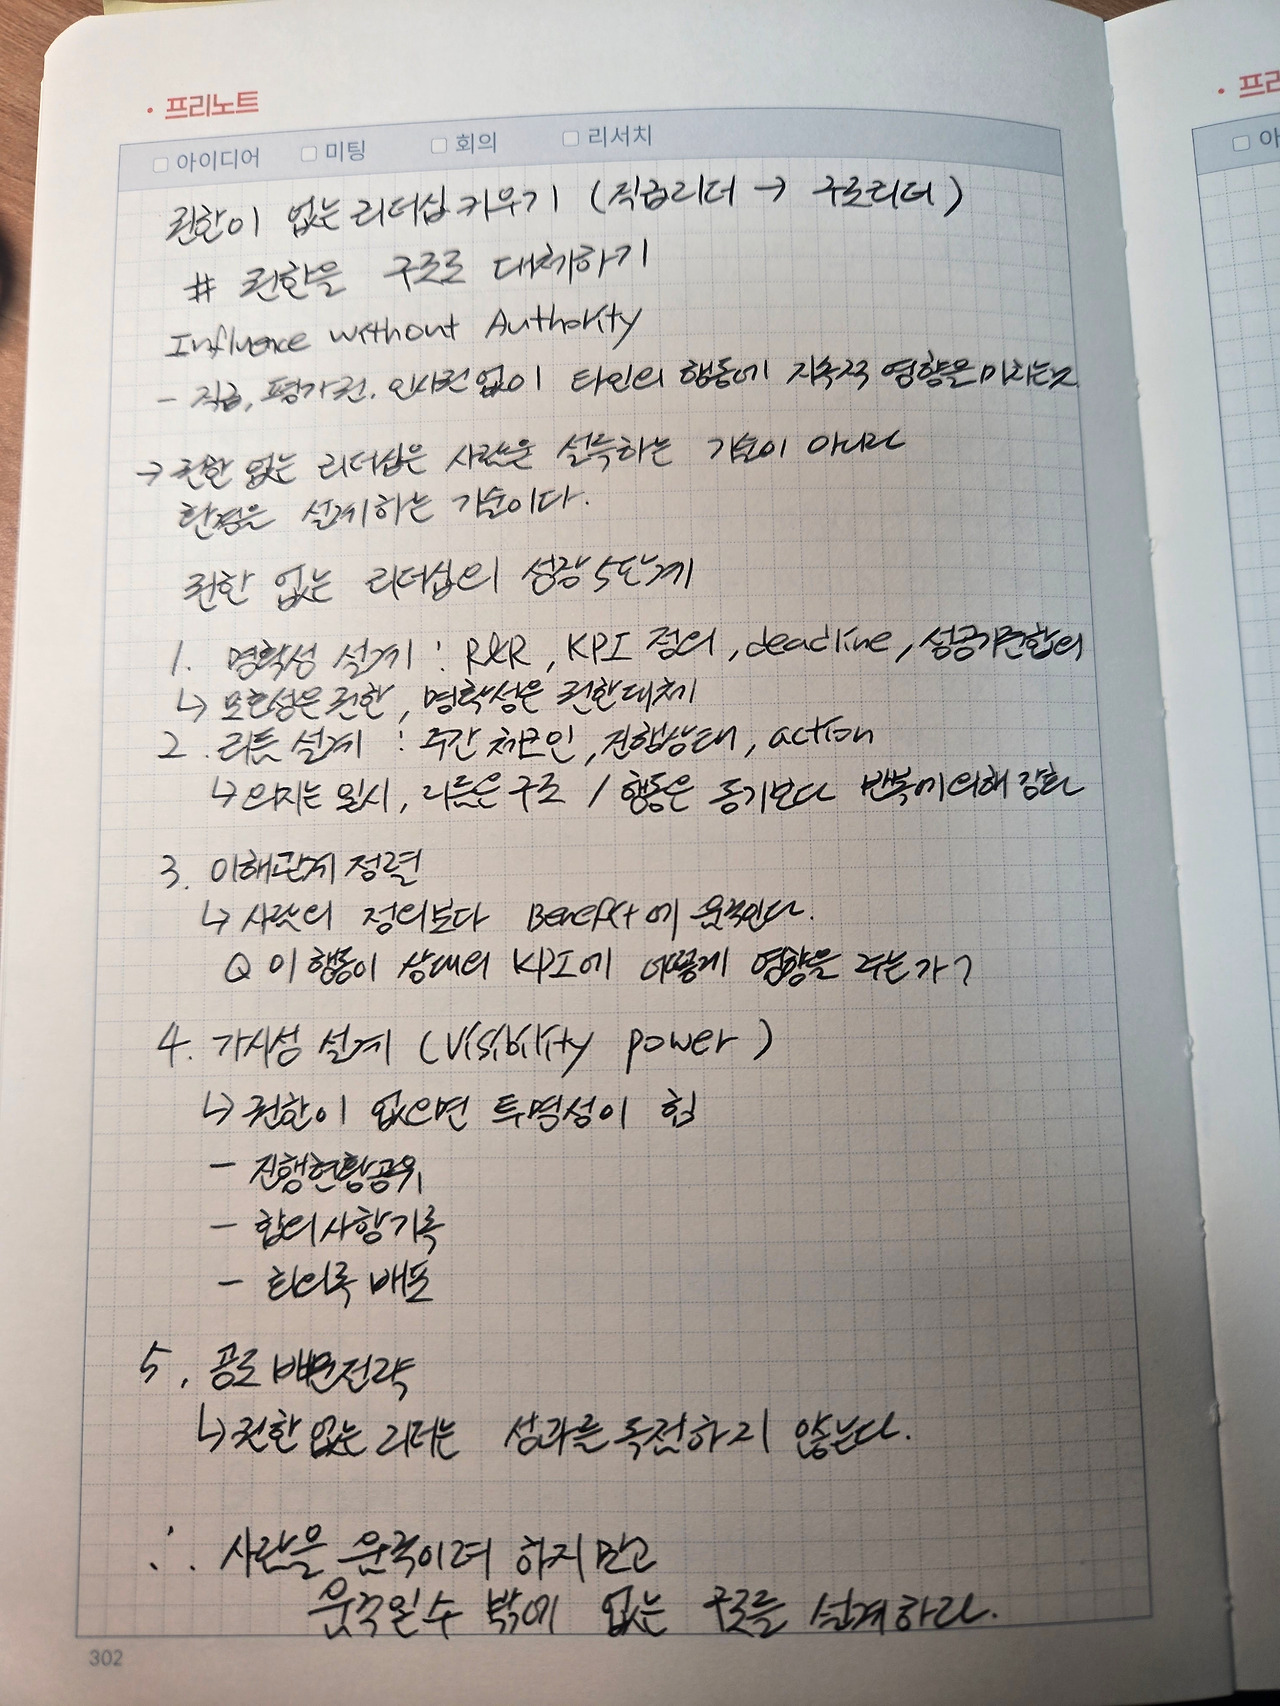 프리노트
프리
아이디어 미팅 회의 리서치
아
권한이 없는 리더십 키우기 (직급리더 → 구조리더)
# 권한을 구조로 대체하기
Influence without Authority
- 직급, 평가권, 인사권 없이 타인의 행동에 지속적 영향을 미치는것
→ 권한 없는 리더십은 사람을 설득하는 기술이 아니라
환경을 설계하는 기술이다.
권한 없는 리더십의 성장 5단계
1. 명확성 설계 : R&R, KPI 정의, deadline, 성공기준합의
↳ 모호성은 권한, 명확성은 권한대체
2. 리듬 설계 : 주간 체크인, 진행상태, action
↳ 의지는 일시, 리듬은 구조 / 행동은 동기보다 반복에 의해 강화
3. 이해관계 정렬
↳ 사람의 정의보다 Benefit에 움직인다.
Q 이 행동이 상대의 KPI에 어떻게 영향을 주는가?
4. 가시성 설계 (Visibility power)
↳ 권한이 없으면 투명성이 힘
- 진행현황공유
- 합의사항기록
- 회의록 배포
5. 공로 배분전략
↳ 권한 없는 리더는 성과를 독점하지 않는다.
∴ 사람을 움직이려 하지말고
움직일수 밖에 없는 구조를 설계하라.
302